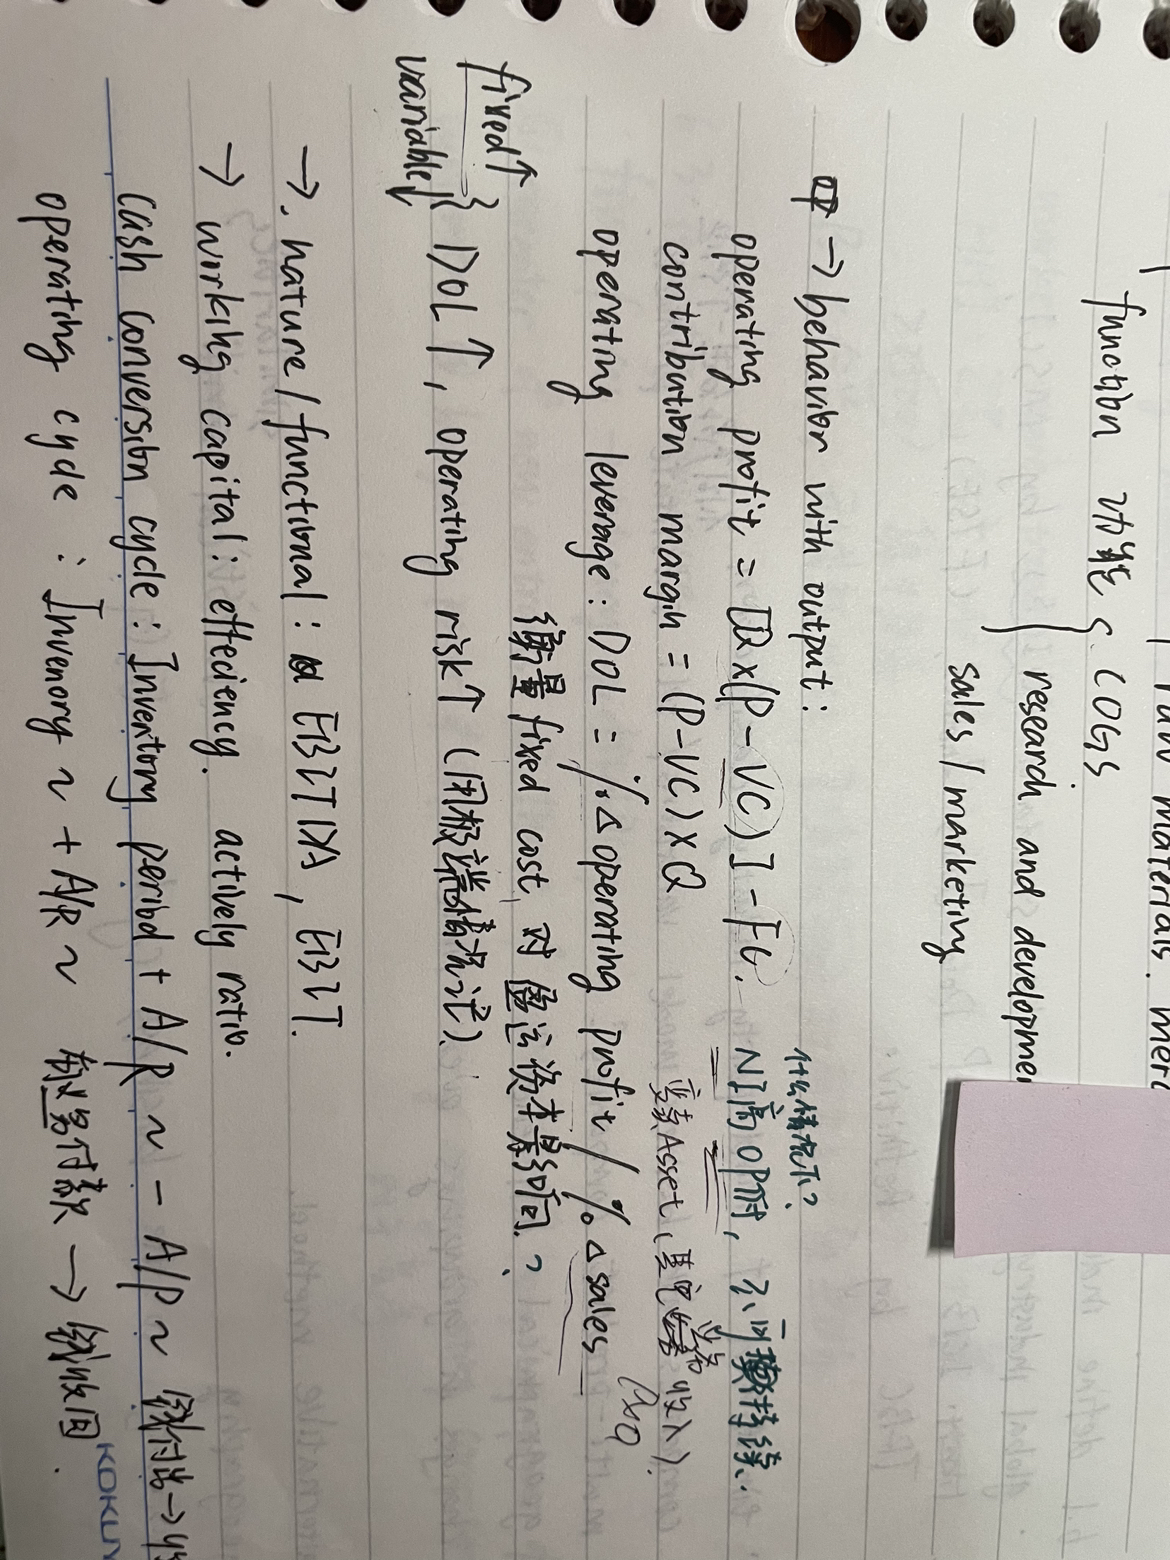 raw materials. merc
function 功能 { COGS
research and developme
sales / marketing
→ behavior with output:
什么情况下?
operating profit = [Q x (P - VC)] - FC. NI高OP低, 不可持续.
contribution margin = (P-VC) x Q 变卖Asset(其它业务收入).
operating leverage: DOL = %Δ operating profit / %Δ sales PxQ
衡量 fixed cost, 对 营运资本影响?
fixed↑
variable↓ } DOL↑, operating risk↑ (闭极端情况记)
→. nature / functional: EBITDA, EBIT.
→ working capital: effeciency. actively ratio.
Cash conversion cycle: Inventory period + A/R ~ - A/P ~ 钱付出→收
operating cycle: Invenory ~ + A/R ~ 付款 → 钱收回.
KOKUY